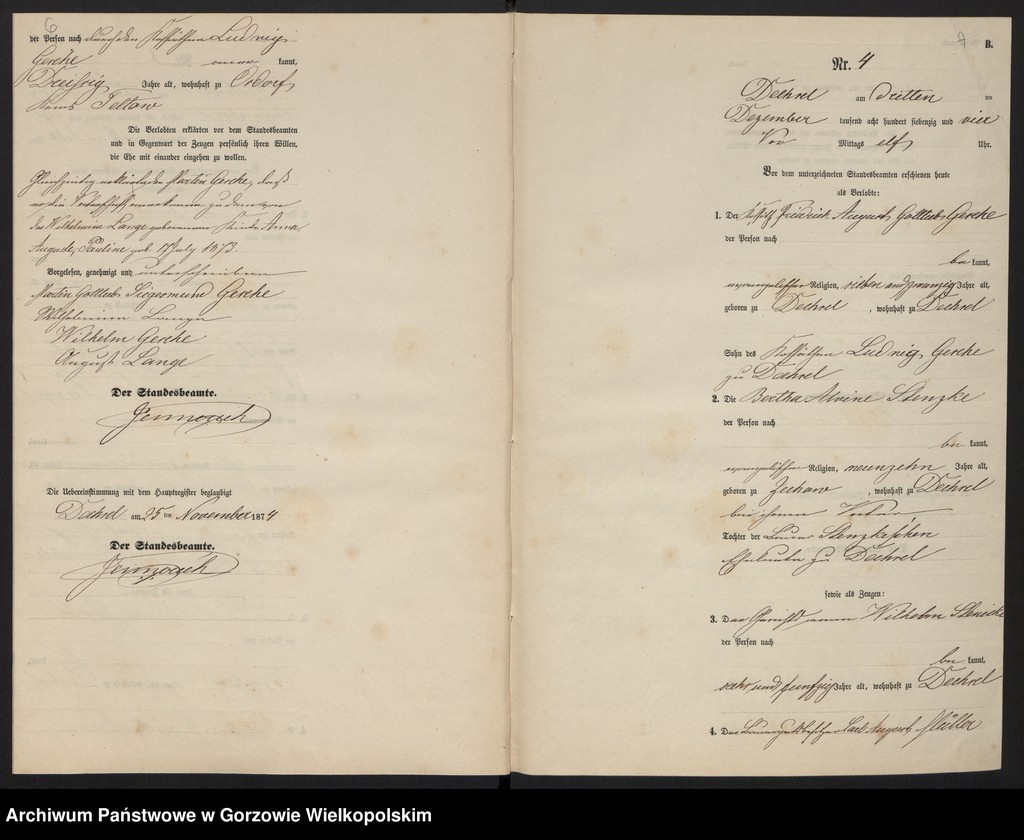 6
der Person nach durch den Kossäthen Ludwig
Gericke kannt,
Dreißig Jahre alt, wohnhaft zu Osdorf
Kreis Teltow
Die Verlobten erklärten vor dem Standesbeamten
und in Gegenwart der Zeugen persönlich ihren Willen,
die Ehe mit einander eingehen zu wollen.
Gleichzeitig Martin Gericke, daß
zu dem von
der Wilhelmine Lange geborenen Kinde Anna
Auguste, Pauline geb. 17 July 1873
Vorgelesen, genehmigt und unterschrieben
Martin Gottlieb Siegesmund Gericke
Wilhelmine Lange
Wilhelm Gericke
August Lange
Der Standesbeamte.
Die Uebereinstimmung mit dem Hauptregister beglaubigt
Dechsel am 25 ten November 1874
Der Standesbeamte.
7
B.
Nr. 4
Dechsel am dritten
Dezember tausend acht hundert siebenzig und vier
Vor Mittags elf Uhr.
Vor dem unterzeichneten Standesbeamten erschienen heute
als Verlobte:
1. Der Friedrich August Gottlieb Gericke
der Person nach
be kannt,
evangelischer Religion, sieben und zwanzig Jahre alt,
geboren zu Dechsel, wohnhaft zu Dechsel
Sohn des Kossäthen Ludwig Gericke
zu Dechsel
2. Die Bertha Alvine Stenzke
der Person nach
be kannt,
evangelischer Religion, neunzehn Jahre alt,
geboren zu Zechow, wohnhaft zu Dechsel
bei ihrem Vater
Tochter der Bauer Stenzkeschen
Eheleute zu Dechsel
sowie als Zeugen:
3. Der Wilhelm
der Person nach
be kannt,
sechs und funfzig Jahre alt, wohnhaft zu Dechsel
4. Der Bauergutsbesitzer Carl August Müller
Archiwum Państwowe w Gorzowie Wielkopolskim